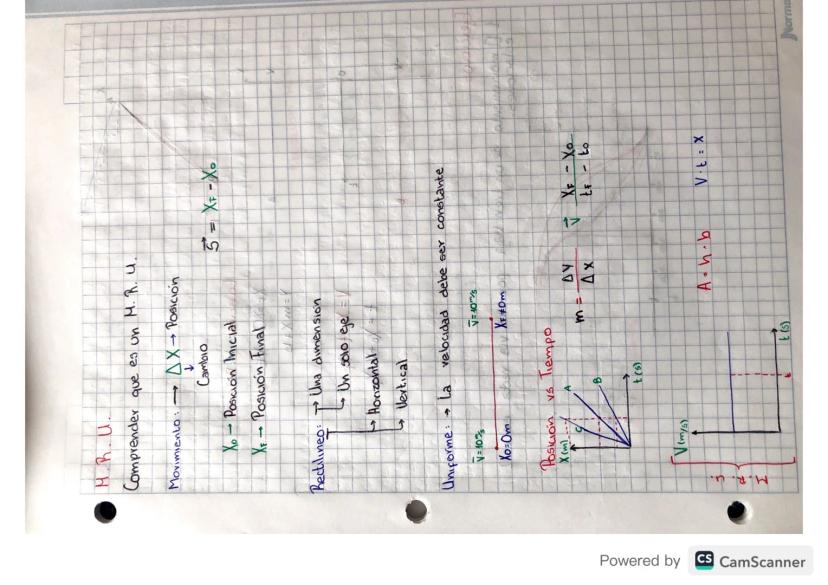 M. R. U.
Comprender que es un M. R. U.
Movimiento: → ΔX → Posición
Cambio
S = XF - X0
X0 → Posición Inicial
XF → Posición Final
Rectilíneo: → Una dimensión
→ Un solo eje
→ Horizontal
→ Vertical
Uniforme: → La velocidad debe ser constante
V=10m/s V=10m/s
X0=0m XF≠0m
Posición vs Tiempo
X(m) C A B t(s)
m = ΔY / ΔX V XF - X0 / tF - t0
V(m/s) t(s)
M. R. U.
A = h · b V · t = X
Norma
Powered by CS CamScanner